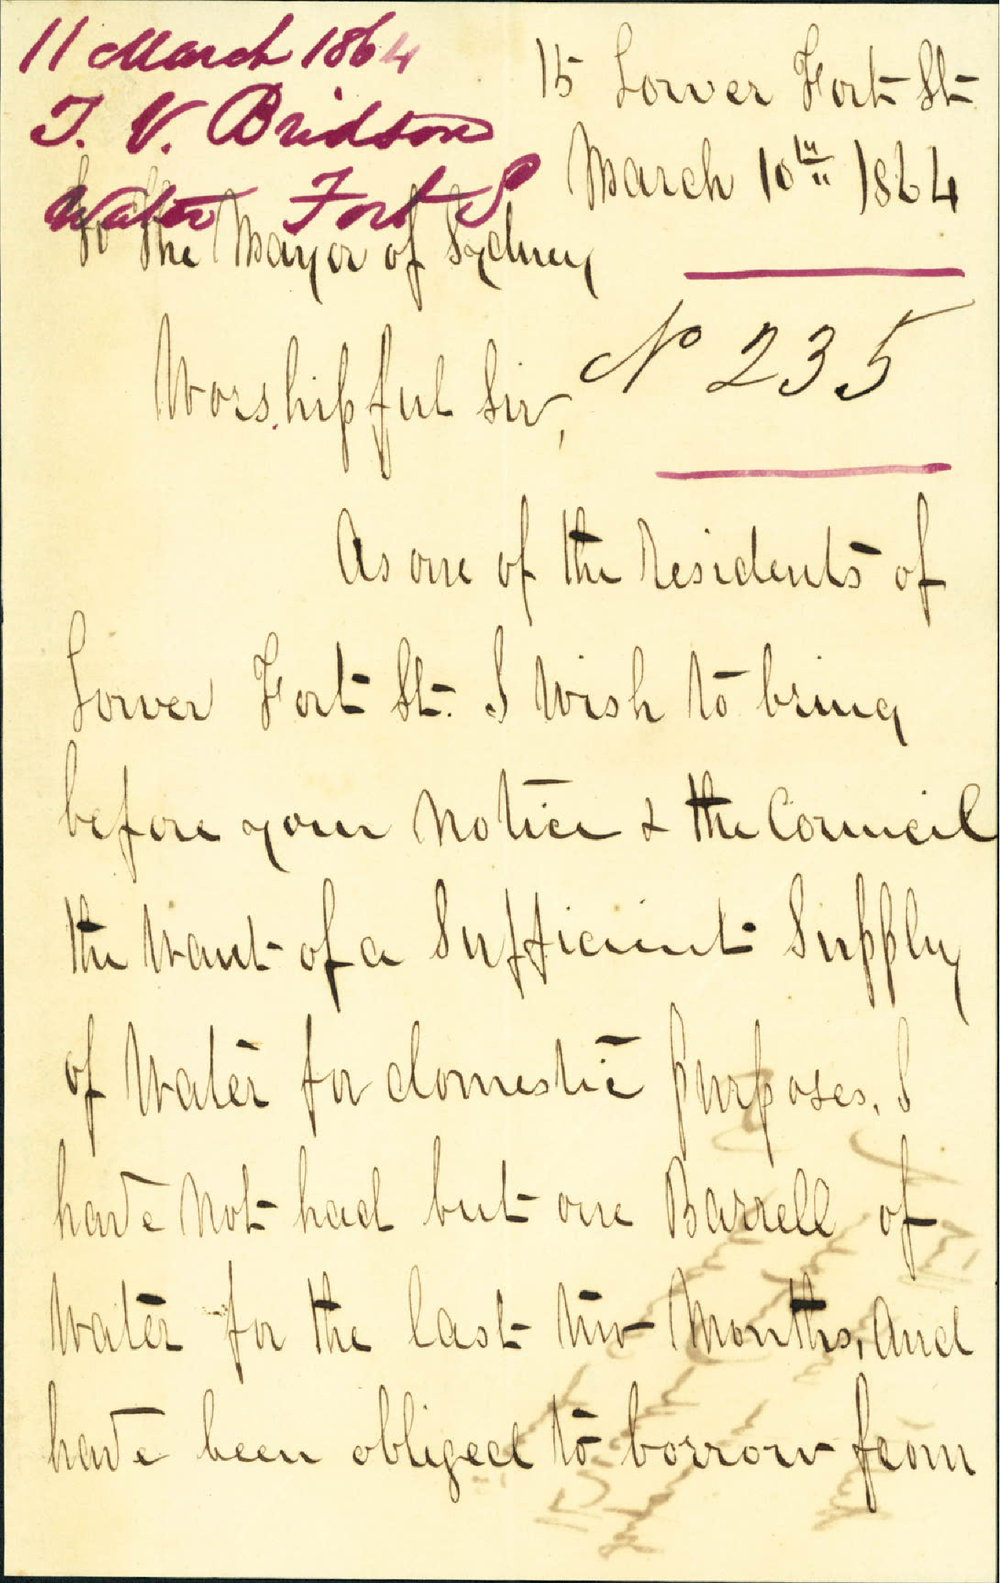 11 March 1864
T. V. Bridson
Water Fort S
15 Lower Fort St
March 10th 1864
To the Mayor of Sydney
No 235
Worshipful Sir,
As one of the Residents of
Lower Fort St. I Wish to bring
before your Notice & the Council
the Want of a Sufficient Supply
of Water for domestic purposes. I
have Not had but one Barrell of
Water for the last two Months, and
have been obliged to borrow from